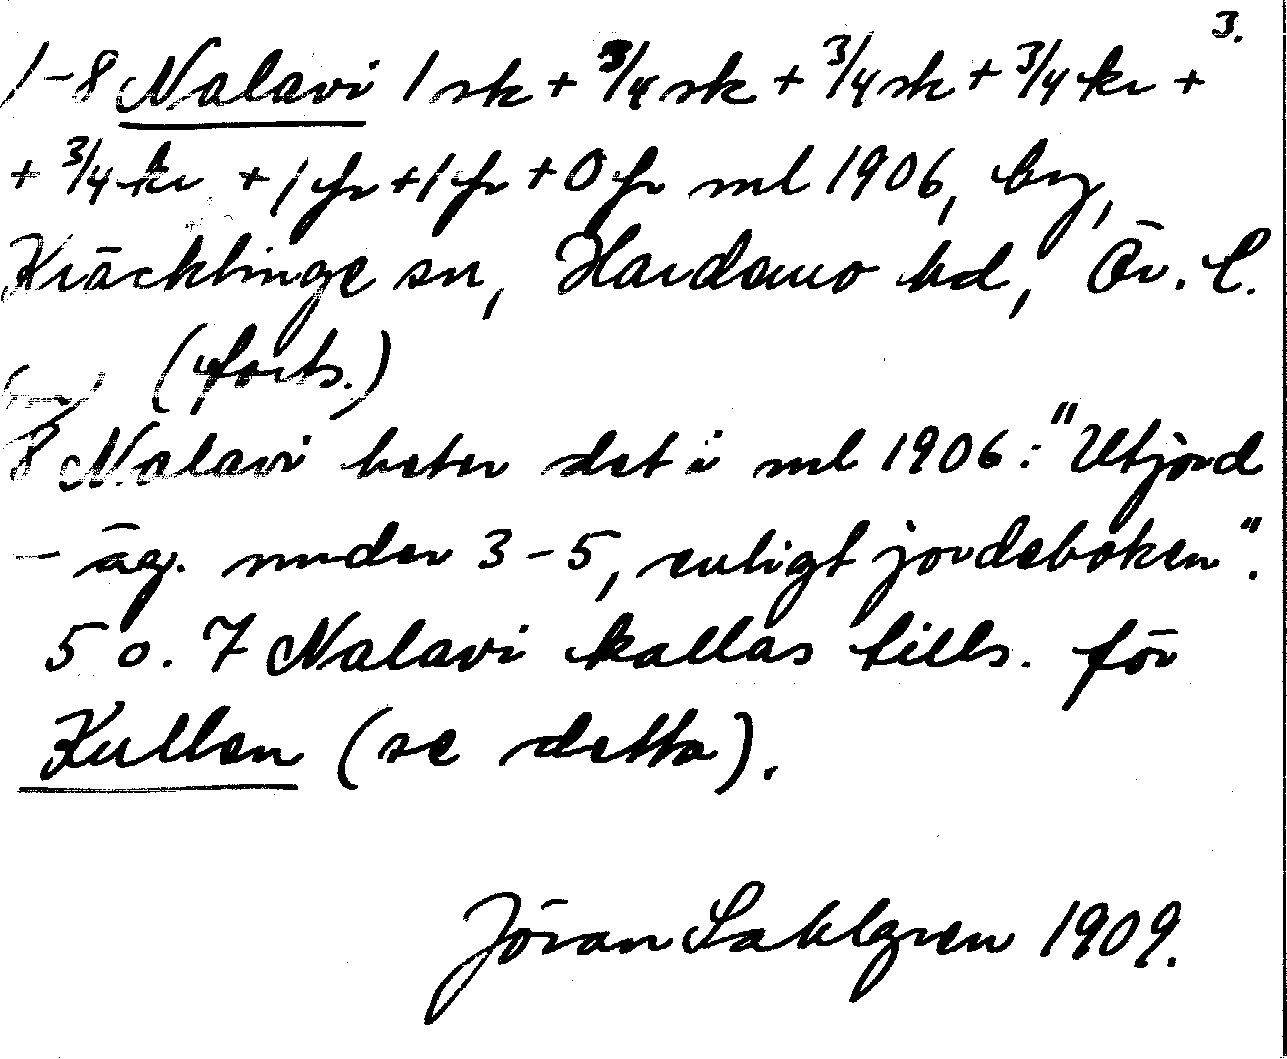 3.
1-8 Nalavi 1 sk + 3/4 sk + 3/4 sk + 3/4 kr +
+ 3/4 kr + 1 fr + 1 fr + 0 fr ml 1906, by,
Kräcklinge sn, Hardemo hd, Ör. L.
(forts.)
8 Nalavi heter det i ml 1906: "Utjord
- äg. under 3-5, enligt jordeboken".
5 o. 7 Nalavi kallas tills. för
Kullen (se detta).
Jöran Sahlgren 1909.